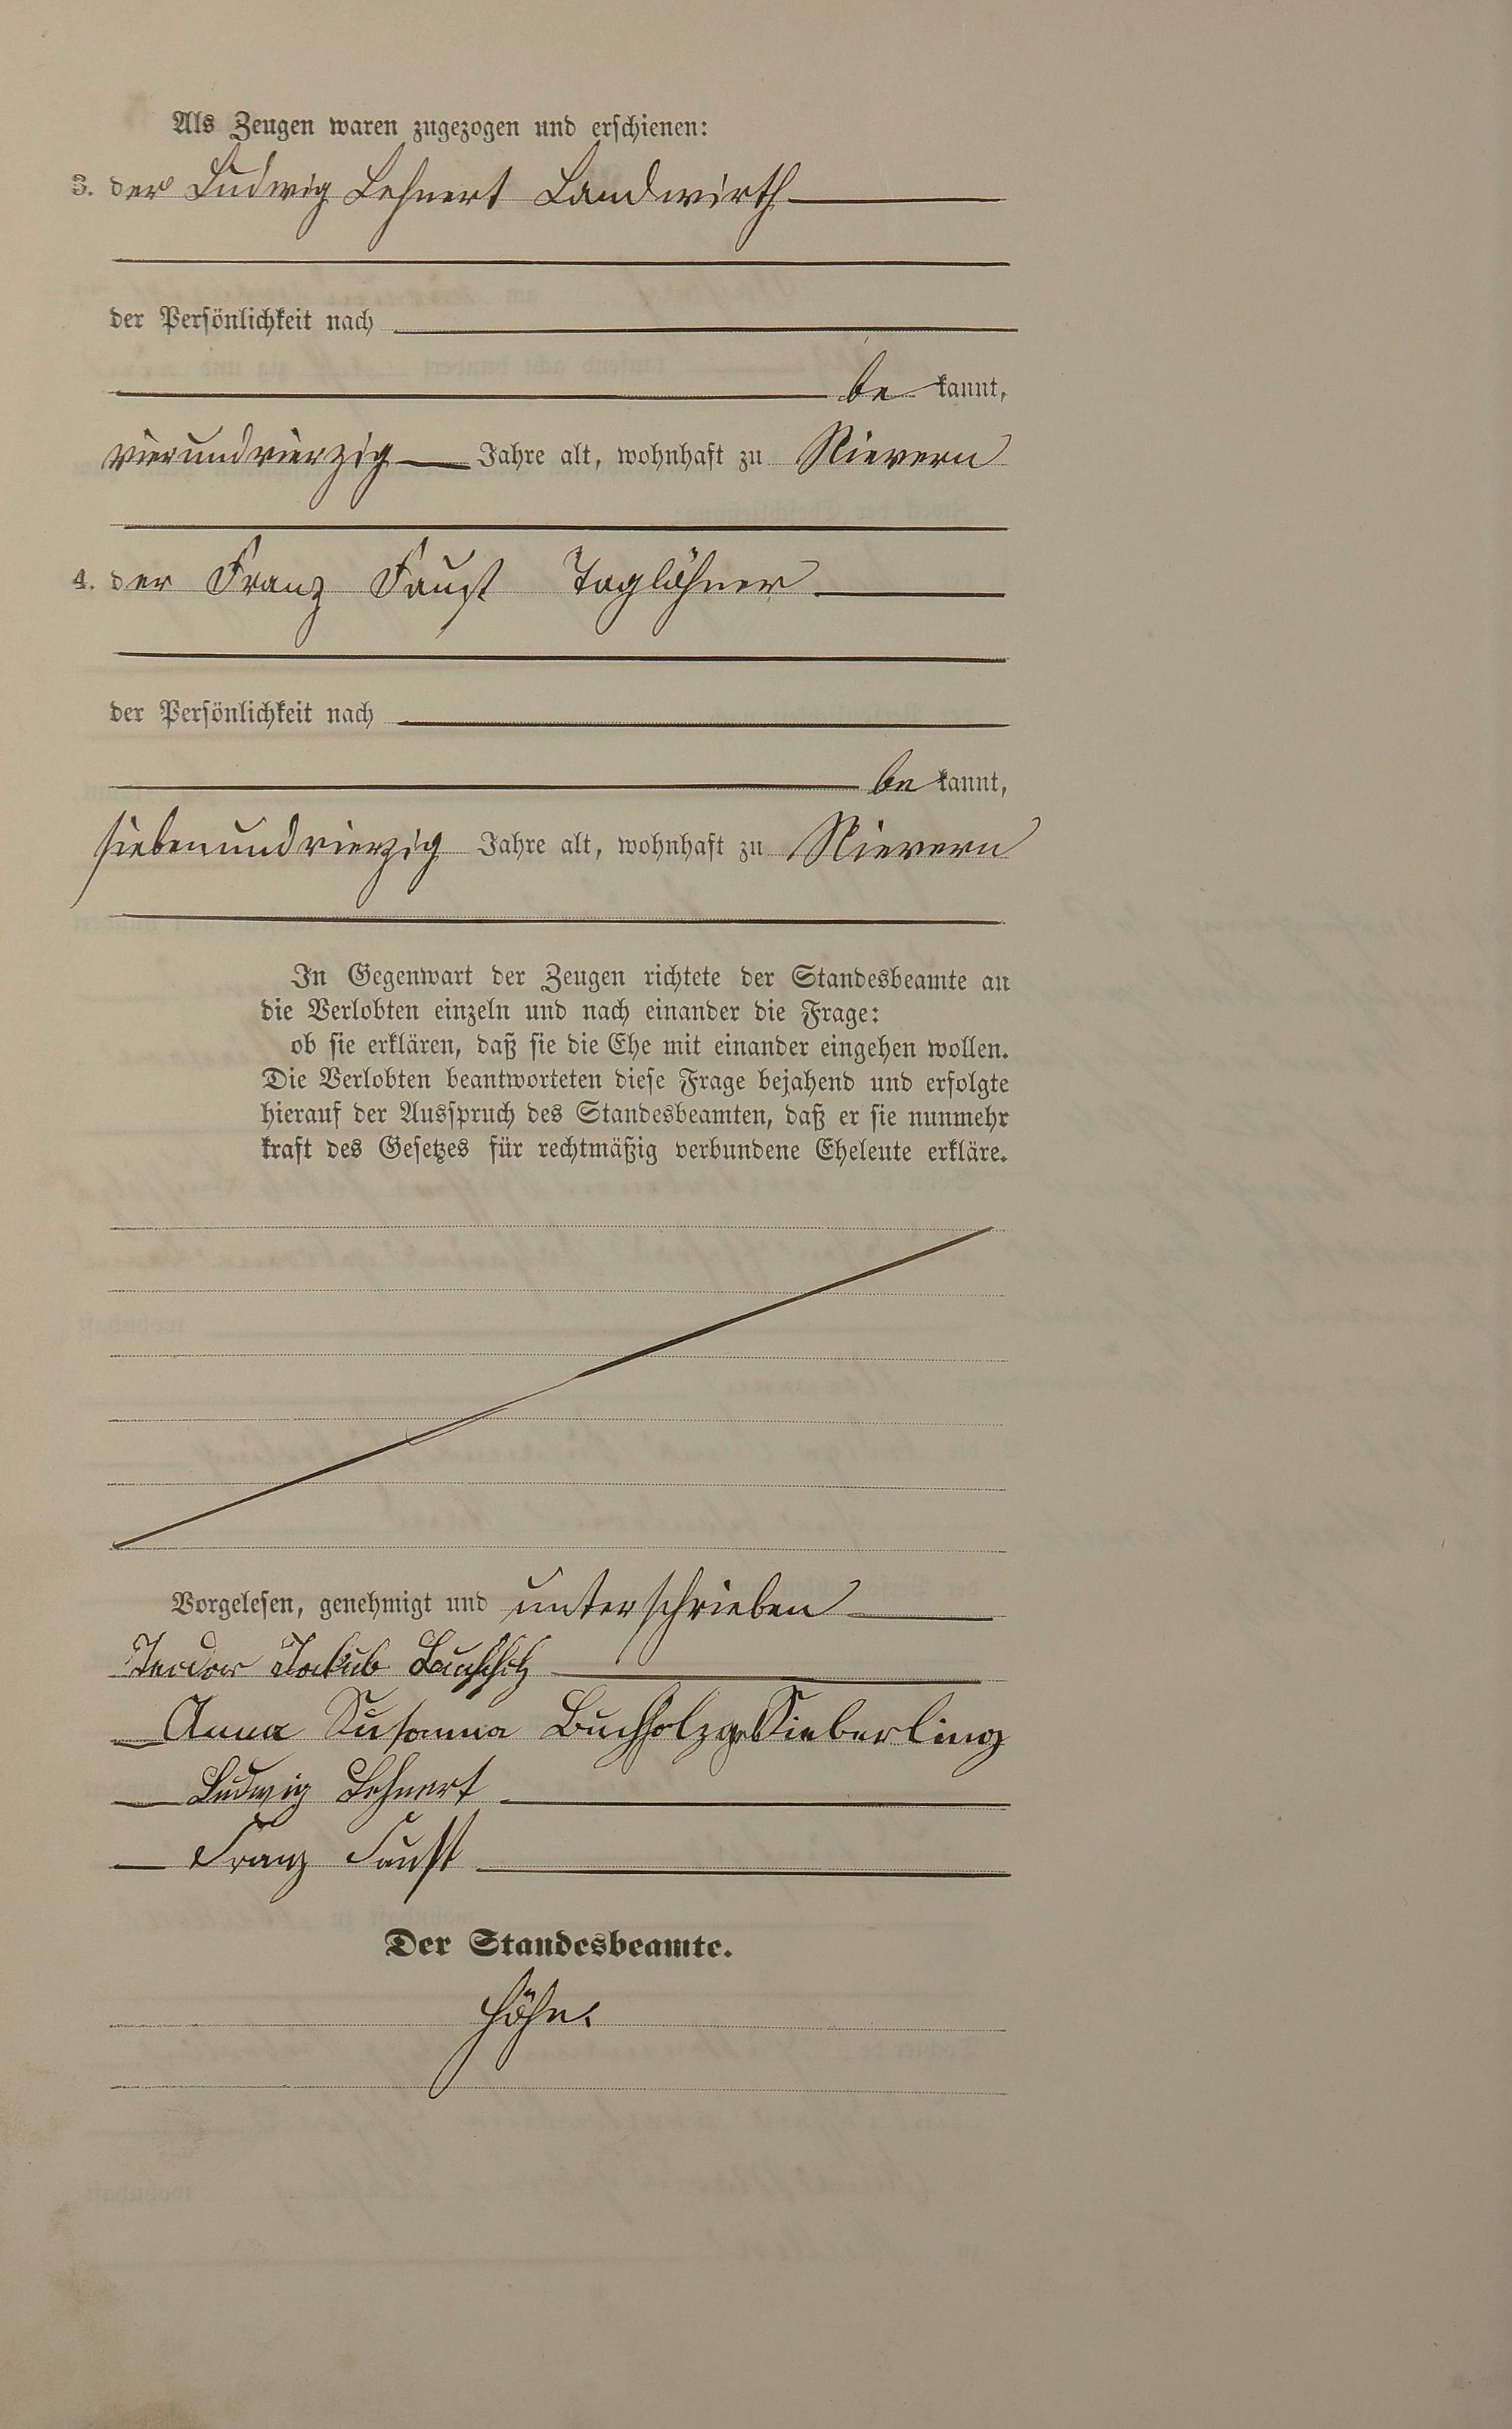 Als Zeugen waren zugezogen und erschienen:
3. der Ludwig Lehnert Landwirth
der Persönlichkeit nach
be kannt,
vierundvierzig Jahre alt, wohnhaft zu Nievern
4. der Franz Faust Taglöhner
der Persönlichkeit nach
be kannt,
siebenundvierzig Jahre alt, wohnhaft zu Nievern
In Gegenwart der Zeugen richtete der Standesbeamte an
die Verlobten einzeln und nach einander die Frage:
ob sie erklären, daß sie die Ehe mit einander eingehen wollen.
Die Verlobten beantworteten diese Frage bejahend und erfolgte
hierauf der Ausspruch des Standesbeamten, daß er sie nunmehr
kraft des Gesetzes für rechtmäßig verbundene Eheleute erkläre.
Vorgelesen, genehmigt und unterschrieben
Teodor Jakob
Anna Susanna Buchholz geb Sieberling
Ludwig Lehnert
Franz Faust
Der Standesbeamte.
Höhn.